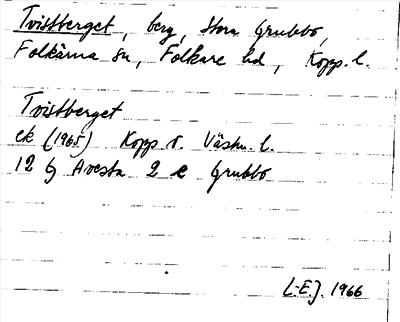 Tvistberget, berg, Stora Grubbo,
Folkärna sn, Folkare hd, Kopp. l.
Tvistberget
ek (1965) Kopp. o. Västm. l.
12 G Avesta 2 e Grubbo
L-E.J. 1966